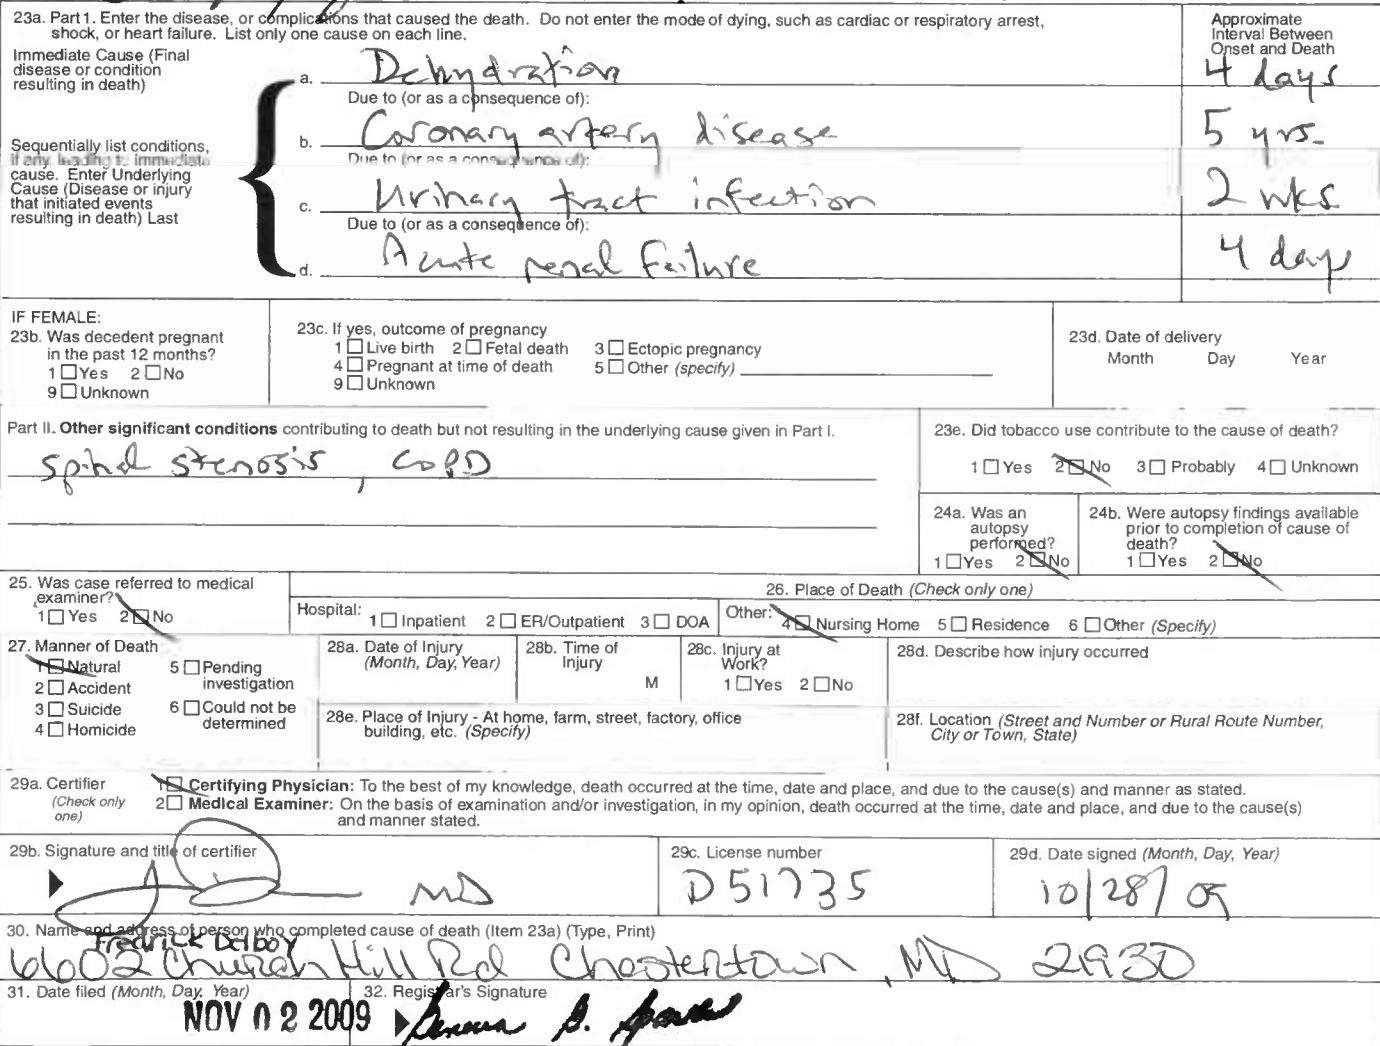 23a. Part 1. Enter the disease, or complications that caused the death. Do not enter the mode of dying, such as cardiac or respiratory arrest,
shock, or heart failure. List only one cause on each line.
Approximate
Interval Between
Onset and Death
Immediate Cause (Final
disease or condition
resulting in death)
a. Dehydration 4 days
Due to (or as a consequence of):
b. Coronary artery disease 5 yrs.
Due to (or as a consequence of):
Sequentially list conditions,
if any, leading to immediate
cause. Enter Underlying
Cause (Disease or injury
that initiated events
resulting in death) Last
c. Urinary tract infection 2 wks
Due to (or as a consequence of):
d. Acute renal failure 4 days
IF FEMALE:
23b. Was decedent pregnant
in the past 12 months?
1 ☐ Yes 2 ☐ No
9 ☐ Unknown
23c. If yes, outcome of pregnancy
1 ☐ Live birth 2 ☐ Fetal death 3 ☐ Ectopic pregnancy
4 ☐ Pregnant at time of death 5 ☐ Other (specify)
9 ☐ Unknown
23d. Date of delivery
Month Day Year
Part II. Other significant conditions contributing to death but not resulting in the underlying cause given in Part I.
spinal stenosis, COPD
23e. Did tobacco use contribute to the cause of death?
1 ☐ Yes 2 ☐ No 3 ☐ Probably 4 ☐ Unknown
24a. Was an
autopsy
performed?
1 ☐ Yes 2 ☐ No
24b. Were autopsy findings available
prior to completion of cause of
death?
1 ☐ Yes 2 ☐ No
25. Was case referred to medical
examiner?
1 ☐ Yes 2 ☐ No
26. Place of Death (Check only one)
Hospital: 1 ☐ Inpatient 2 ☐ ER/Outpatient 3 ☐ DOA Other: 4 ☐ Nursing Home 5 ☐ Residence 6 ☐ Other (Specify)
27. Manner of Death
1 ☐ Natural 5 ☐ Pending
investigation
2 ☐ Accident
3 ☐ Suicide 6 ☐ Could not be
determined
4 ☐ Homicide
28a. Date of Injury
(Month, Day, Year)
28b. Time of
Injury
M
28c. Injury at
Work?
1 ☐ Yes 2 ☐ No
28d. Describe how injury occurred
28e. Place of Injury - At home, farm, street, factory, office
building, etc. (Specify)
28f. Location (Street and Number or Rural Route Number,
City or Town, State)
29a. Certifier
(Check only
one)
1 ☐ Certifying Physician: To the best of my knowledge, death occurred at the time, date and place, and due to the cause(s) and manner as stated.
2 ☐ Medical Examiner: On the basis of examination and/or investigation, in my opinion, death occurred at the time, date and place, and due to the cause(s)
and manner stated.
29b. Signature and title of certifier
MD
29c. License number
D51735
29d. Date signed (Month, Day, Year)
10/28/09
30. Name and address of person who completed cause of death (Item 23a) (Type, Print)
Fredrick Delboy
6602 Church Hill Rd Chestertown, MD 21930
31. Date filed (Month, Day, Year)
NOV 02 2009
32. Registrar's Signature